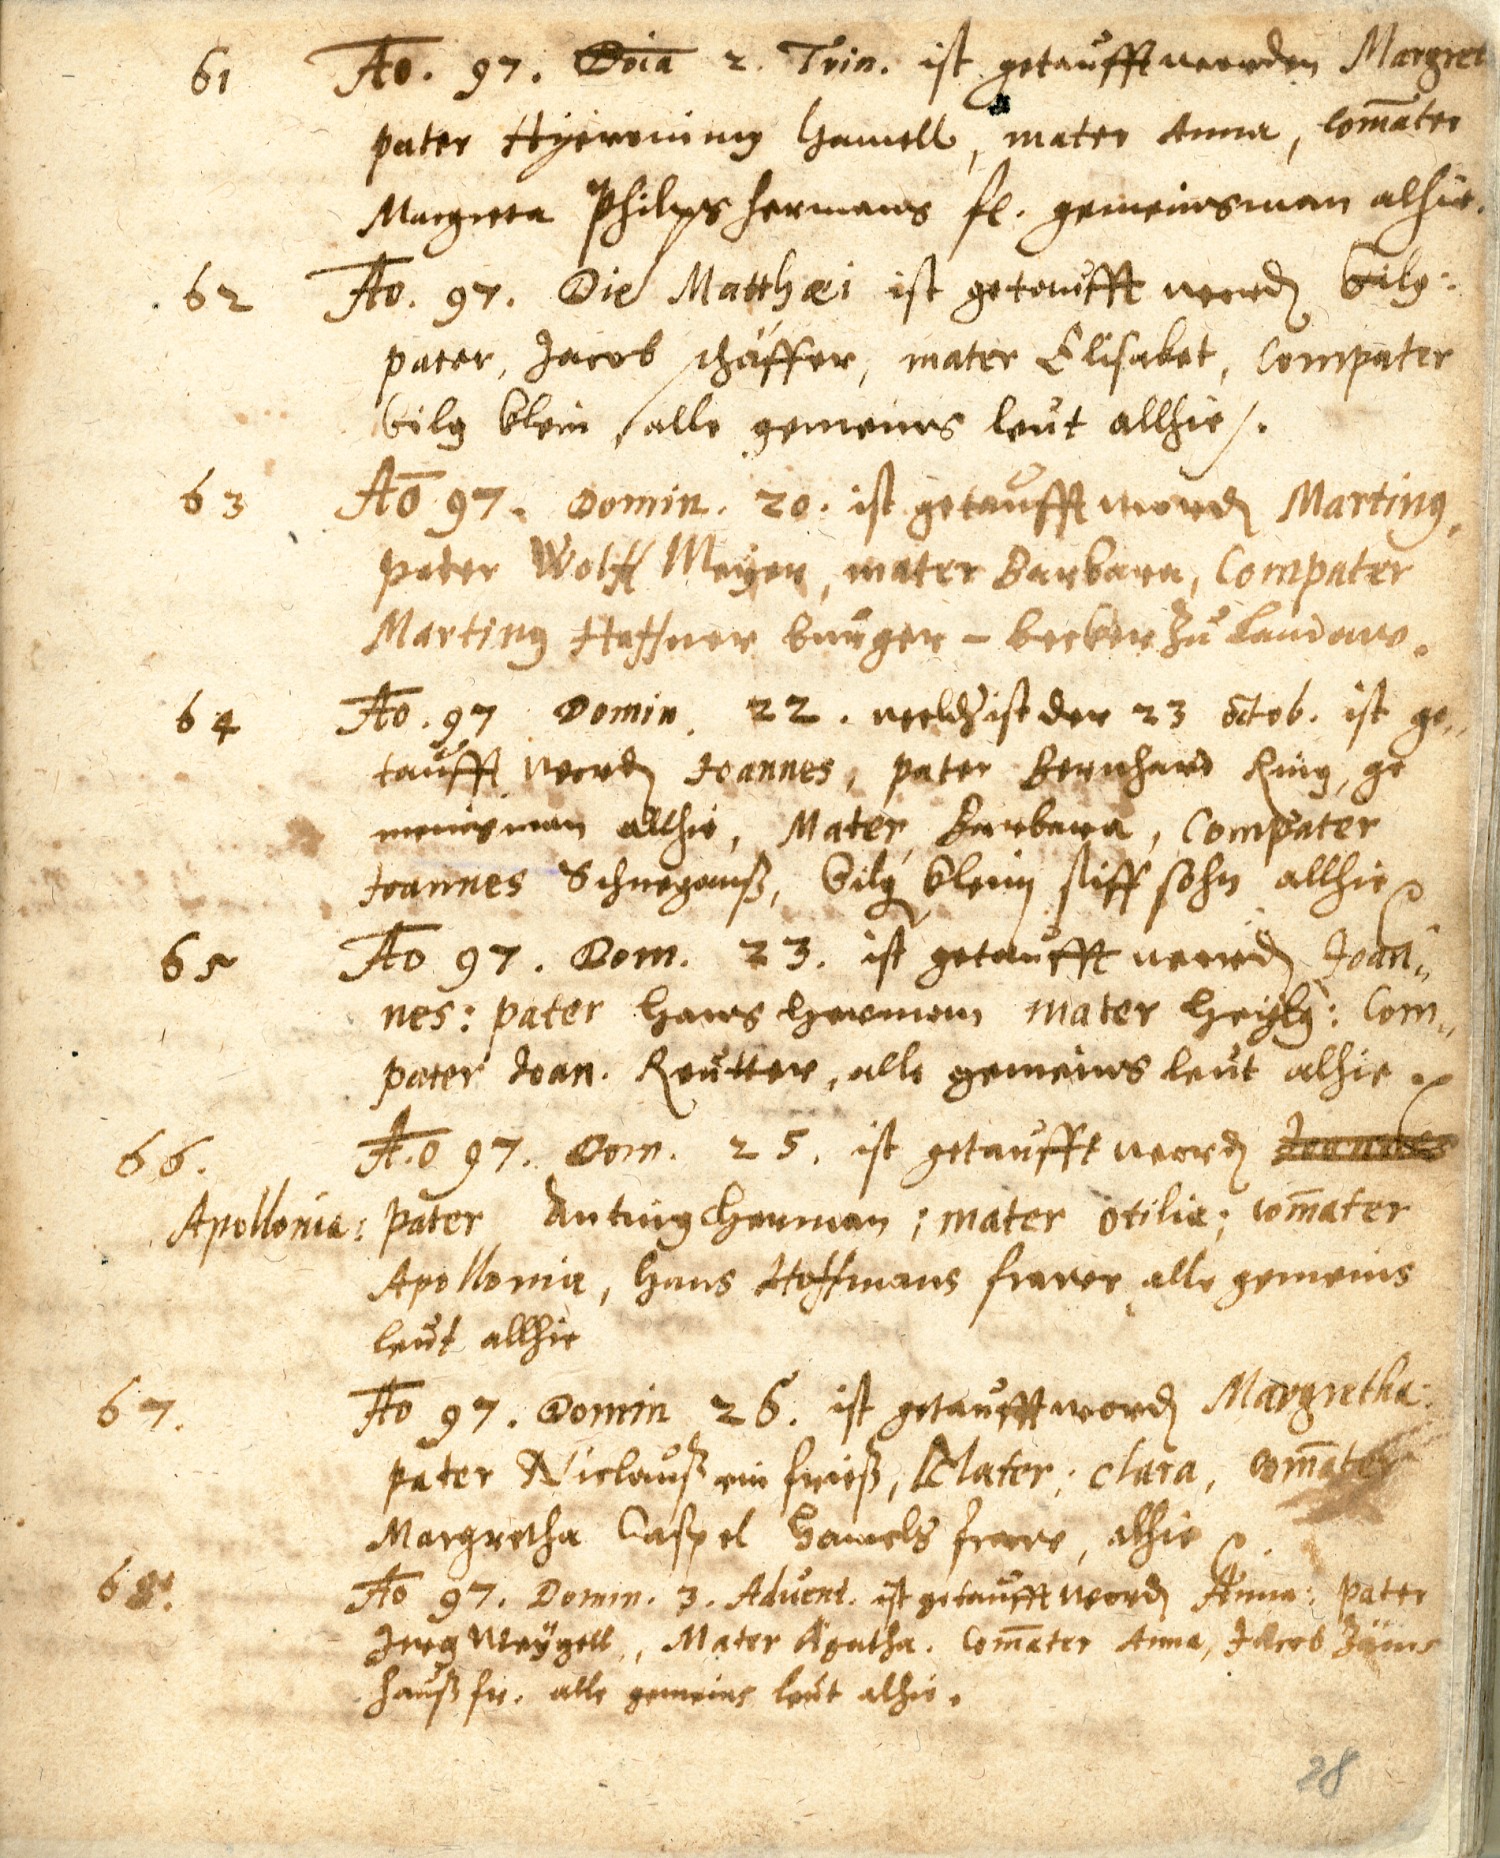 61 Ao. 97. Doīa 2. Trin. ist getaufft worden Margret
pater Hÿeronimꝰ Hamell, mater Anna, com̄ater
Margreta Philips Hermans fl. gemeinsman alhie.
62 Ao. 97. Die Matthæi ist getaufft word Gilg:
pater, Jacob schäffer, mater Elisabet, Compater
Gilg Klein, alle gemeins leut allhie.
63 Ao 97. Domin. 20. ist getaufft word Martinꝰ,
pater Wolff Meÿer, mater Barbara, Compater
Martinꝰ Haffner burger - becker zu Landaw.
64 Ao. 97 Domin. 22. welchs ist der 23 octob. ist ge„
taufft word Joannes, pater Bernhard King, ge
meinsman allhie, Mater, Barbara, Compater
Joannes Schnegauß, Gilg Klein stiff sohn allhie
65 Ao 97. Dom. 23. ist getaufft word Joan„
nes: pater Hans Herman mater Heÿlg: Com„
pater Joan. Reutter, alle gemeins leut alhie.
66. A.o 97. Dom. 25. ist getaufft word Joannes
Apollonia: pater Antinꝰ Herman; mater otilia; com̄ater
Apollonia, Hans Hoffmans frawe, alle gemeins
leut allhie
67. Ao 97. Domin 26. ist getaufft word Margretha:
pater Niclauß ein frieß, Mater; clara, com̄ater
Margretha Caspel Hamels frawe, alhie
68. Ao 97. Domin. 3. Advent. ist getaufft word Anna: pater
Jerg Weÿgell, Mater Agatha. Com̄ater Anna, Jacob Zäuns
haußfr. alle gemeins leut alhie.
28